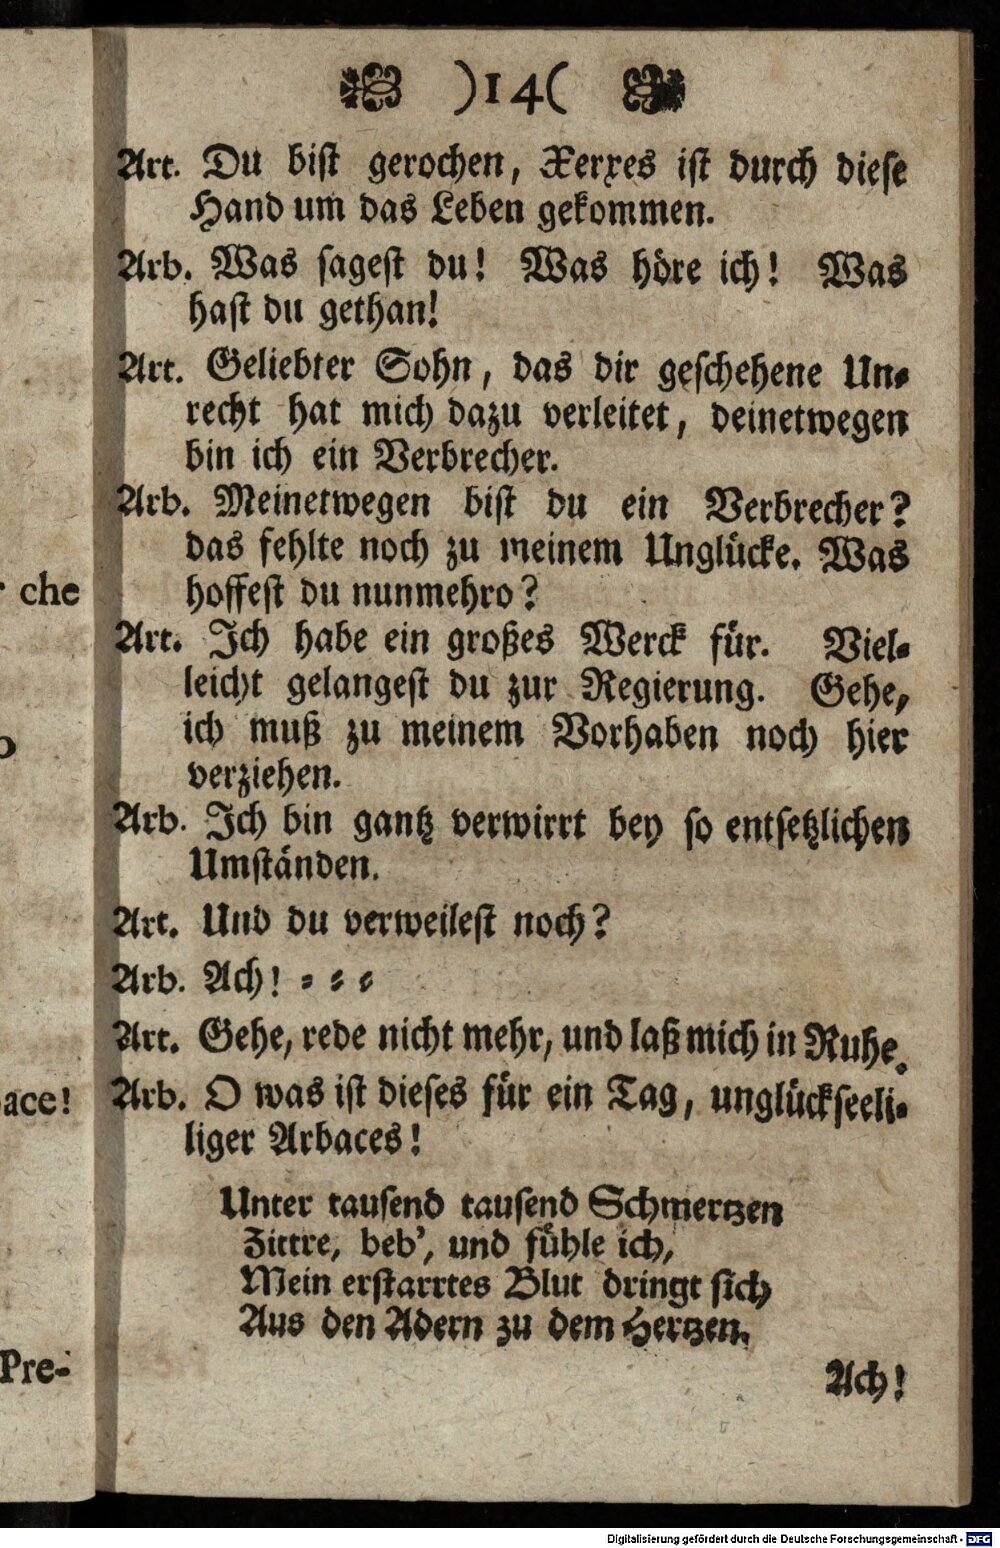 )14(
Art. Du bist gerochen, Xerxes ist durch diese
Hand um das Leben gekommen.
Arb. Was sagest du! Was höre ich! Was
hast du gethan!
Art. Geliebter Sohn, das dir geschehene Un-
recht hat mich dazu verleitet, deinetwegen
bin ich ein Verbrecher.
Arb. Meinetwegen bist du ein Verbrecher?
das fehlte noch zu meinem Unglücke. Was
hoffest du nunmehro?
Art. Ich habe ein großes Werck für. Viel-
leicht gelangest du zur Regierung. Gehe,
ich muß zu meinem Vorhaben noch hier
verziehen.
Arb. Ich bin gantz verwirrt bey so entsetzlichen
Umständen.
Art. Und du verweilest noch?
Arb. Ach! - - -
Art. Gehe, rede nicht mehr, und laß mich in Ruhe.
Arb. O was ist dieses für ein Tag, unglückseeli-
liger Arbaces!
Unter tausend tausend Schmertzen
Zittre, beb', und fühle ich,
Mein erstarrtes Blut dringt sich
Aus den Adern zu dem Hertzen.
Ach!
che
ace!
Pre-
Digitalisierung gefördert durch die Deutsche Forschungsgemeinschaft - DFG